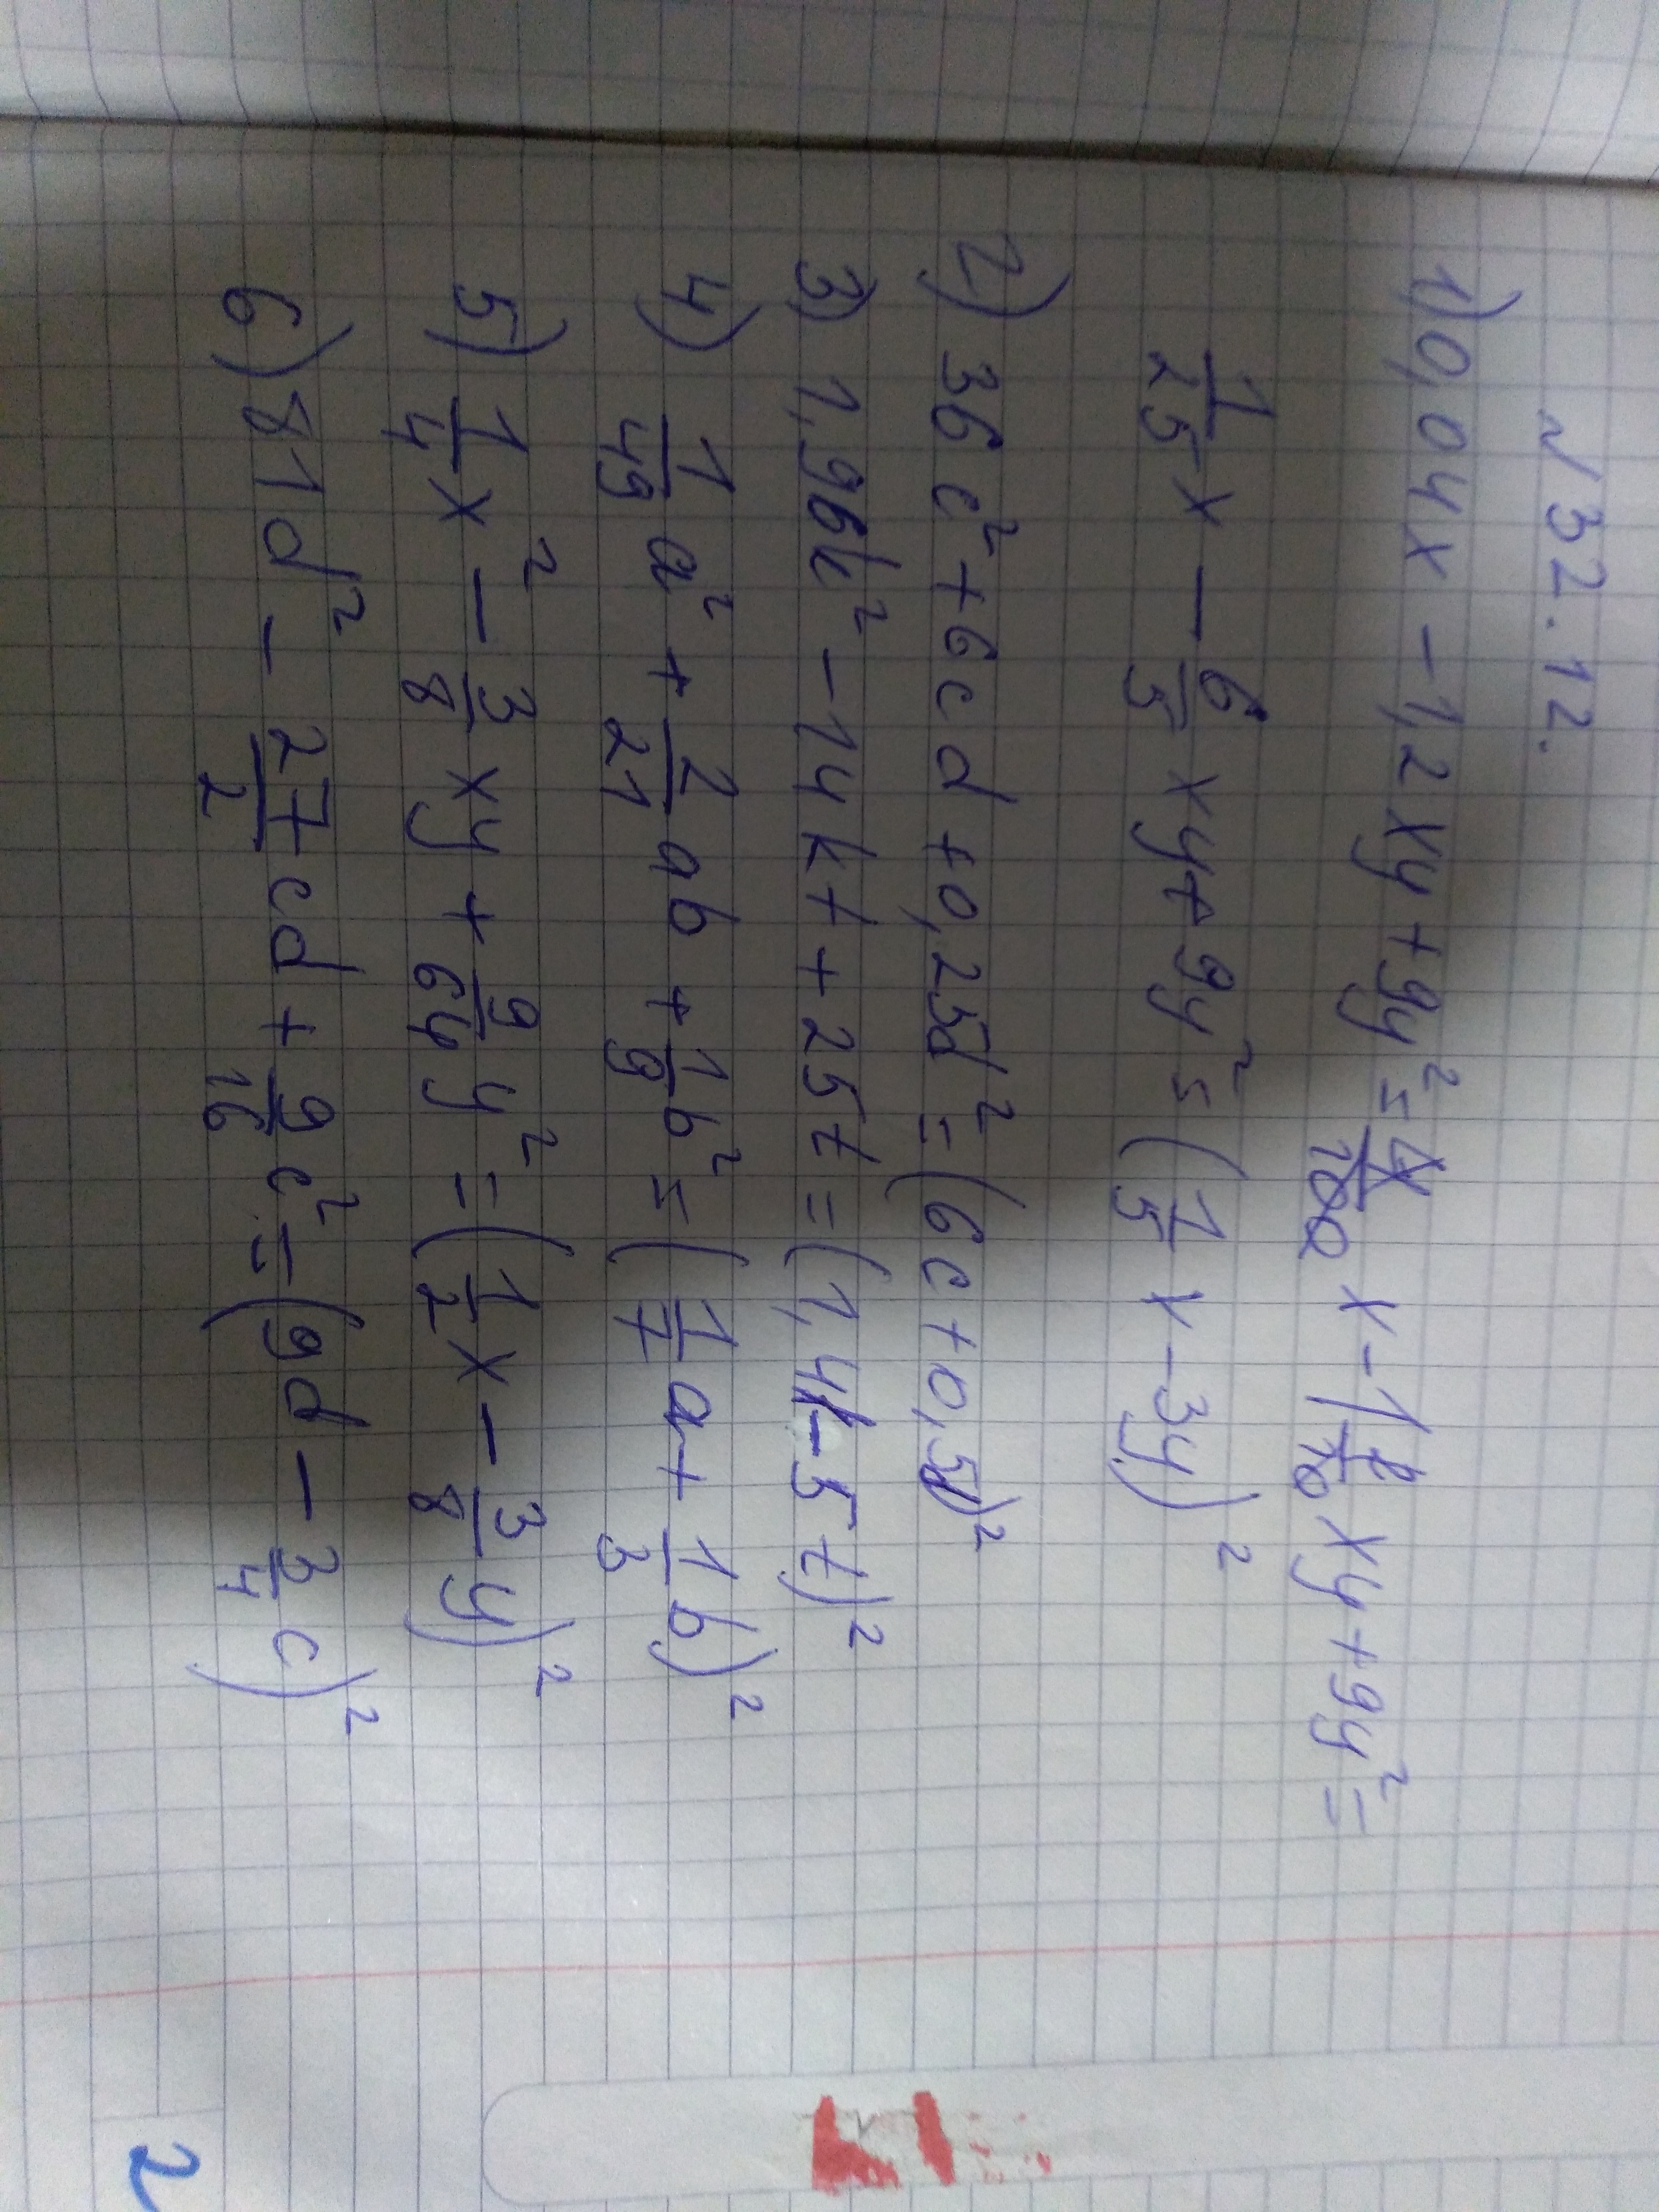 № 32.12.
1) 0,04x - 1,2xy + 9y² = 4/100 x - 1 2/10 xy + 9y² =
1/25 x - 6/5 xy + 9y² = (1/5 x - 3y)²
2) 36c² + 6cd + 0,25d² = (6c + 0,5d)²
3) 1,96k² - 14kt + 25t = (1,4k - 5t)²
4) 1/49 a² + 2/21 ab + 1/9 b² = (1/7 a + 1/3 b)²
5) 1/4 x² - 3/8 xy + 9/64 y² = (1/2 x - 3/8 y)²
6) 81d² - 27/2 cd + 9/16 c² = (9d - 3/4 c)²
2